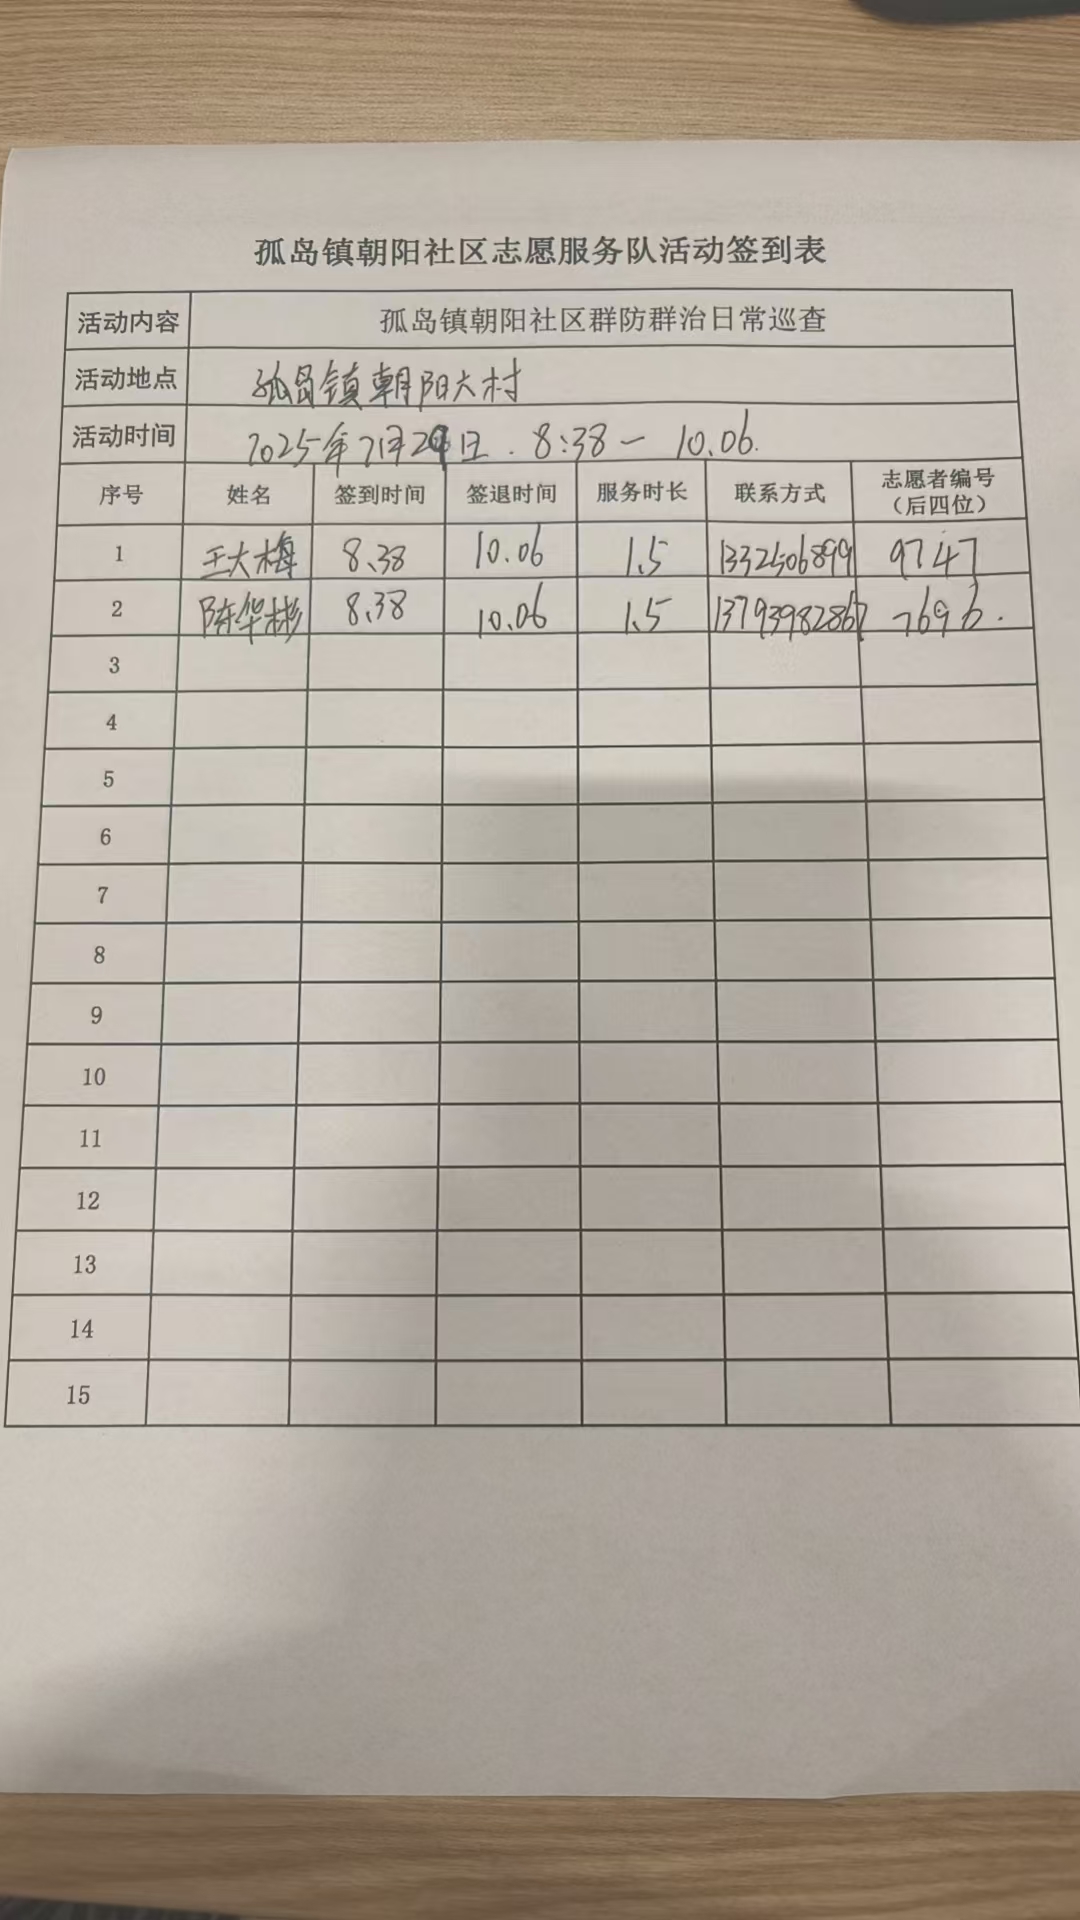 孤岛镇朝阳社区志愿服务队活动签到表
活动内容 孤岛镇朝阳社区群防群治日常巡查
活动地点 孤岛镇朝阳六村
活动时间 2025年7月29日. 8:38一 10.06.
序号 姓名 签到时间 签退时间 服务时长 联系方式 志愿者编号（后四位）
1 王大梅 8.38 10.06 1.5 13325068991 9747
2 陈华彬 8.38 10.06 1.5 13793982867 7696.
3
4
5
6
7
8
9
10
11
12
13
14
15